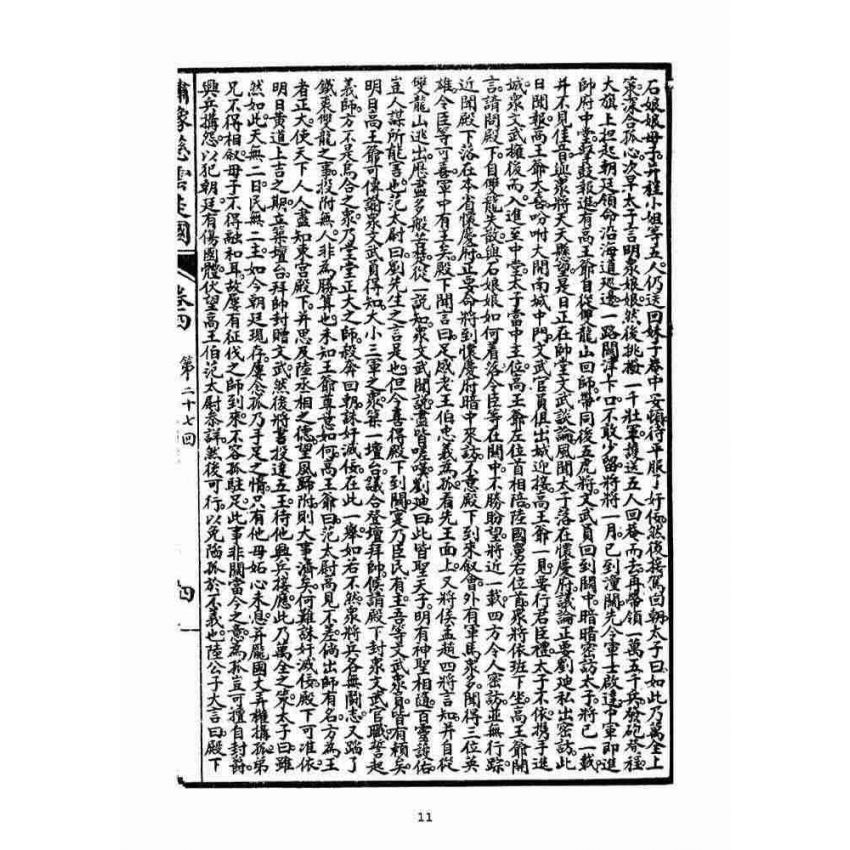 石娘娘母子并程小姐等五人仍送回妹子菴中安頓待平服了奸佞然後接駕回朝太子曰如此乃萬全上
策深合孤心次早太子言明衆娘娘然後挑撥一千壯軍護送五人回菴而去再帶領一萬五千兵發砲登程
大旗上担起朝廷領命沿海道巡邊一路關津卡口不敢少留將將一月已到潼關先令軍士啟達中軍即進
師府中堂擊鼓報進有高王爺自從雙龍山回師帶同後五虎將文武員回到關中暗暗密訪太子將已一載
并不見佳音與衆將天天懸望是日正在帥堂文武談論風聞太子落在懷慶府議論正要劉迪私出密訪此
日聞報高王爺大喜吩咐大開南城中門文武官員俱出城迎接高王爺一見要行君臣禮太子不依携手進
城衆文武擁後而入進至中堂太子當中主位高王爺左位首相陪陸國舅右位首衆將依班下坐高王爺開
言請問殿下自雙龍失散與石娘娘如何着落令臣等在關中不勝盼望將近一載四方令人密訪並無行踪
近聞殿下落在本省懷慶府正要命將到懷慶府暗中來訪不意殿下到來叙會外有軍馬衆多聞得三位英
雄令臣等可喜軍中有主矣殿下聞言曰足感老王伯忠義爲孤看先王面上又將侯孟趙四將言知并自從
雙龍山逃出歷盡多般苦楚從一說知衆文武聞說盡皆嗟嘆劉迪曰此皆聖天子明有神聖相隨百靈護佑
豈人謀所能害也范太尉曰劉先生之言是也但今喜得殿下到關寔乃臣民有主吾等文武衆員皆有賴矣
明日高王爺可傳諭衆文武員得知大小三軍之衆築一壇台議合登壇拜帥候請殿下封衆文武官職誓起
義師方不是烏合之衆乃堂堂正大之師殺奔回朝誅奸滅佞在此一舉如若不然衆將兵各無鬪志又蹈了
鐵裘雙龍之事投附無人非爲勝算也未知王爺尊意如何高王爺曰范太尉高見不差倘出師有名方爲王
者正大使天下人人盡知東宮殿下并思及陸丞相之德望風歸附則大事濟矣何難誅奸滅佞殿下可准依
明日黃道上吉之期立築壇台拜帥封贈文武然後將書投達五王待他興兵接應此乃萬全之策太子曰雖
然如此天無二日民無二主如今朝廷現存屢念孤乃手足之情只有他母妬心未息并龐國丈弄權搆孤弟
兄不得相叙母子不得融和耳故屢有征伐之師到來不容孤駐足此事非關當今之意爲孤豈可擅自封爵
興兵搆怨以犯朝廷有傷國體伏望高王伯范太尉叅詳然後可行以免陷孤於不義也陸公子大言曰殿下
繡像慈雲走國
卷四
第二十七回
四
11